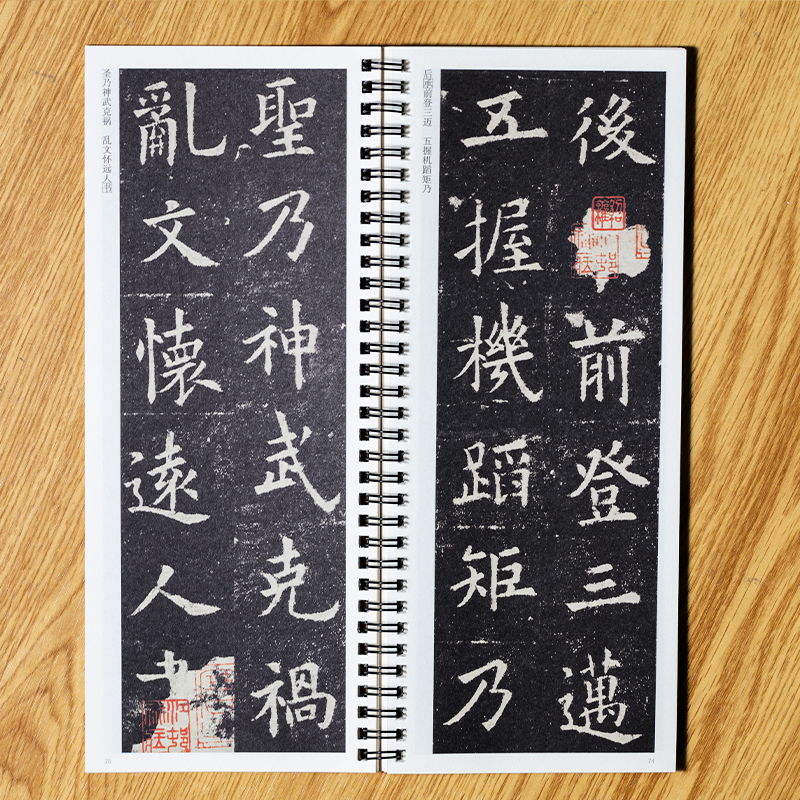 後
前登三邁
五握機蹈矩乃
后
前登三迈　五握机蹈矩乃
74
聖乃神武克禍
亂文懷遠人
圣乃神武克祸　乱文怀远人书